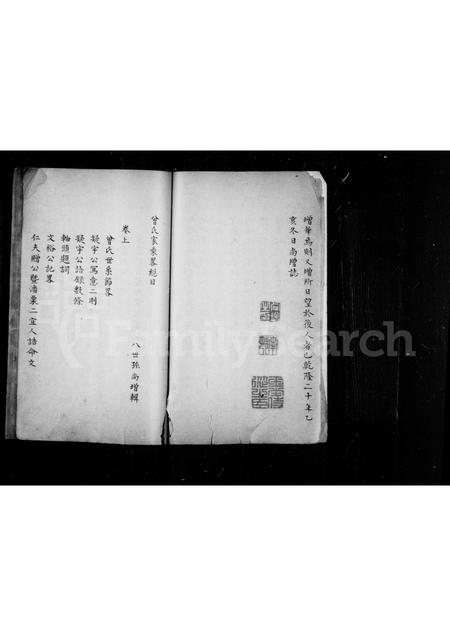 增華焉則又增所日望於後人者已乾隆二十年乙
亥冬日尚增誌
曾氏家乘畧總目
八世孫尚增輯
卷上
曾氏世系節畧
凝宇公寓意二則
凝宇公語録數條
軸頭題詞
文裕公記畧
仁夫贈公暨潘粟二宜人誥命文
FamilySearch